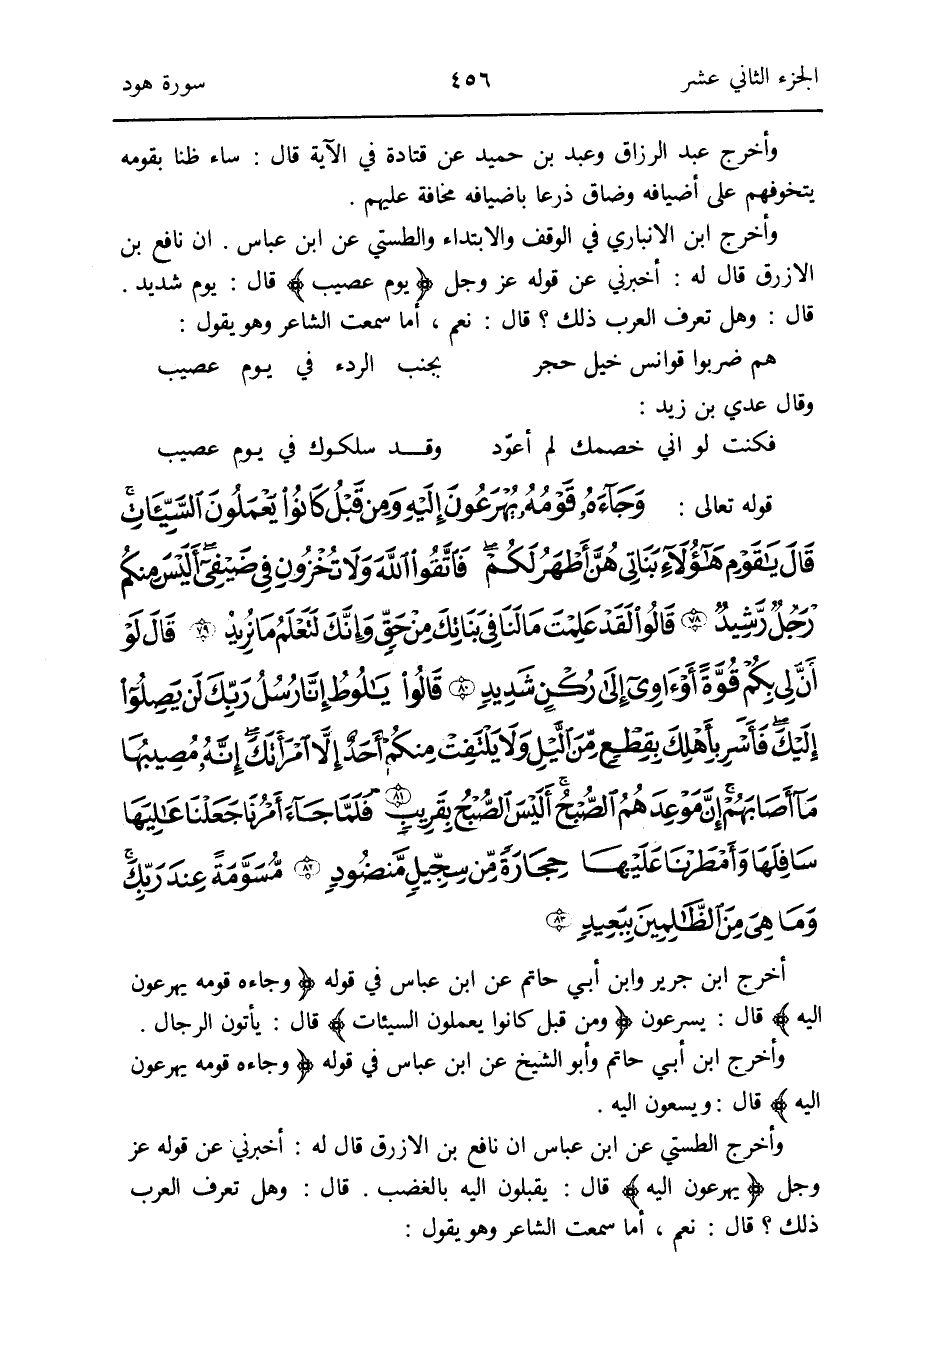 الجزء الثاني عشر ٤٥٦ سورة هود
وأخرج عبد الرزاق وعبد بن حميد عن قتادة في الآية قال : ساء ظنا بقومه
يتخوفهم على أضيافه وضاق ذرعا باضيافه مخافة عليهم .
وأخرج ابن الانباري في الوقف والابتداء والطستي عن ابن عباس . ان نافع بن
الازرق قال له : أخبرني عن قوله عز وجل ﴿ يوم عصيب ﴾ قال : يوم شديد .
قال : وهل تعرف العرب ذلك ؟ قال : نعم ، أما سمعت الشاعر وهو يقول :
هم ضربوا قوانس خيل حجر بجنب الردء في يوم عصيب
وقال عدي بن زيد :
فكنت لو اني خصمك لم أعوّد وقد سلكوك في يوم عصيب
قوله تعالى : وَجَآءَهُۥ قَوْمُهُۥ يُهْرَعُونَ إِلَيْهِ وَمِن قَبْلُ كَانُوا۟ يَعْمَلُونَ ٱلسَّيِّـَٔاتِ ۚ
قَالَ يَـٰقَوْمِ هَـٰٓؤُلَآءِ بَنَاتِى هُنَّ أَطْهَرُ لَكُمْ ۖ فَٱتَّقُوا۟ ٱللَّهَ وَلَا تُخْزُونِ فِى ضَيْفِىٓ ۖ أَلَيْسَ مِنكُمْ
رَجُلٌ رَّشِيدٌ ٧٨ قَالُوا۟ لَقَدْ عَلِمْتَ مَا لَنَا فِى بَنَاتِكَ مِنْ حَقٍّ وَإِنَّكَ لَتَعْلَمُ مَا نُرِيدُ ٧٩ قَالَ لَوْ
أَنَّ لِى بِكُمْ قُوَّةً أَوْ ءَاوِىٓ إِلَىٰ رُكْنٍ شَدِيدٍ ٨٠ قَالُوا۟ يَـٰلُوطُ إِنَّا رُسُلُ رَبِّكَ لَن يَصِلُوٓا۟
إِلَيْكَ ۖ فَأَسْرِ بِأَهْلِكَ بِقِطْعٍ مِّنَ ٱلَّيْلِ وَلَا يَلْتَفِتْ مِنكُمْ أَحَدٌ إِلَّا ٱمْرَأَتَكَ ۖ إِنَّهُۥ مُصِيبُهَا
مَآ أَصَابَهُمْ ۚ إِنَّ مَوْعِدَهُمُ ٱلصُّبْحُ ۚ أَلَيْسَ ٱلصُّبْحُ بِقَرِيبٍ ٨١ فَلَمَّا جَآءَ أَمْرُنَا جَعَلْنَا عَـٰلِيَهَا
سَافِلَهَا وَأَمْطَرْنَا عَلَيْهَا حِجَارَةً مِّن سِجِّيلٍ مَّنضُودٍ ٨٢ مُّسَوَّمَةً عِندَ رَبِّكَ ۖ
وَمَا هِىَ مِنَ ٱلظَّـٰلِمِينَ بِبَعِيدٍ ٨٣
أخرج ابن جرير وابن أبي حاتم عن ابن عباس في قوله ﴿ وجاءه قومه يهرعون
اليه ﴾ قال : يسرعون ﴿ ومن قبل كانوا يعملون السيئات ﴾ قال : يأتون الرجال .
وأخرج ابن أبي حاتم وأبو الشيخ عن ابن عباس في قوله ﴿ وجاءه قومه يهرعون
اليه ﴾ قال : ويسعون اليه .
وأخرج الطستي عن ابن عباس ان نافع بن الازرق قال له : أخبرني عن قوله عز
وجل ﴿ يهرعون اليه ﴾ قال : يقبلون اليه بالغضب . قال : وهل تعرف العرب
ذلك ؟ قال : نعم ، أما سمعت الشاعر وهو يقول :